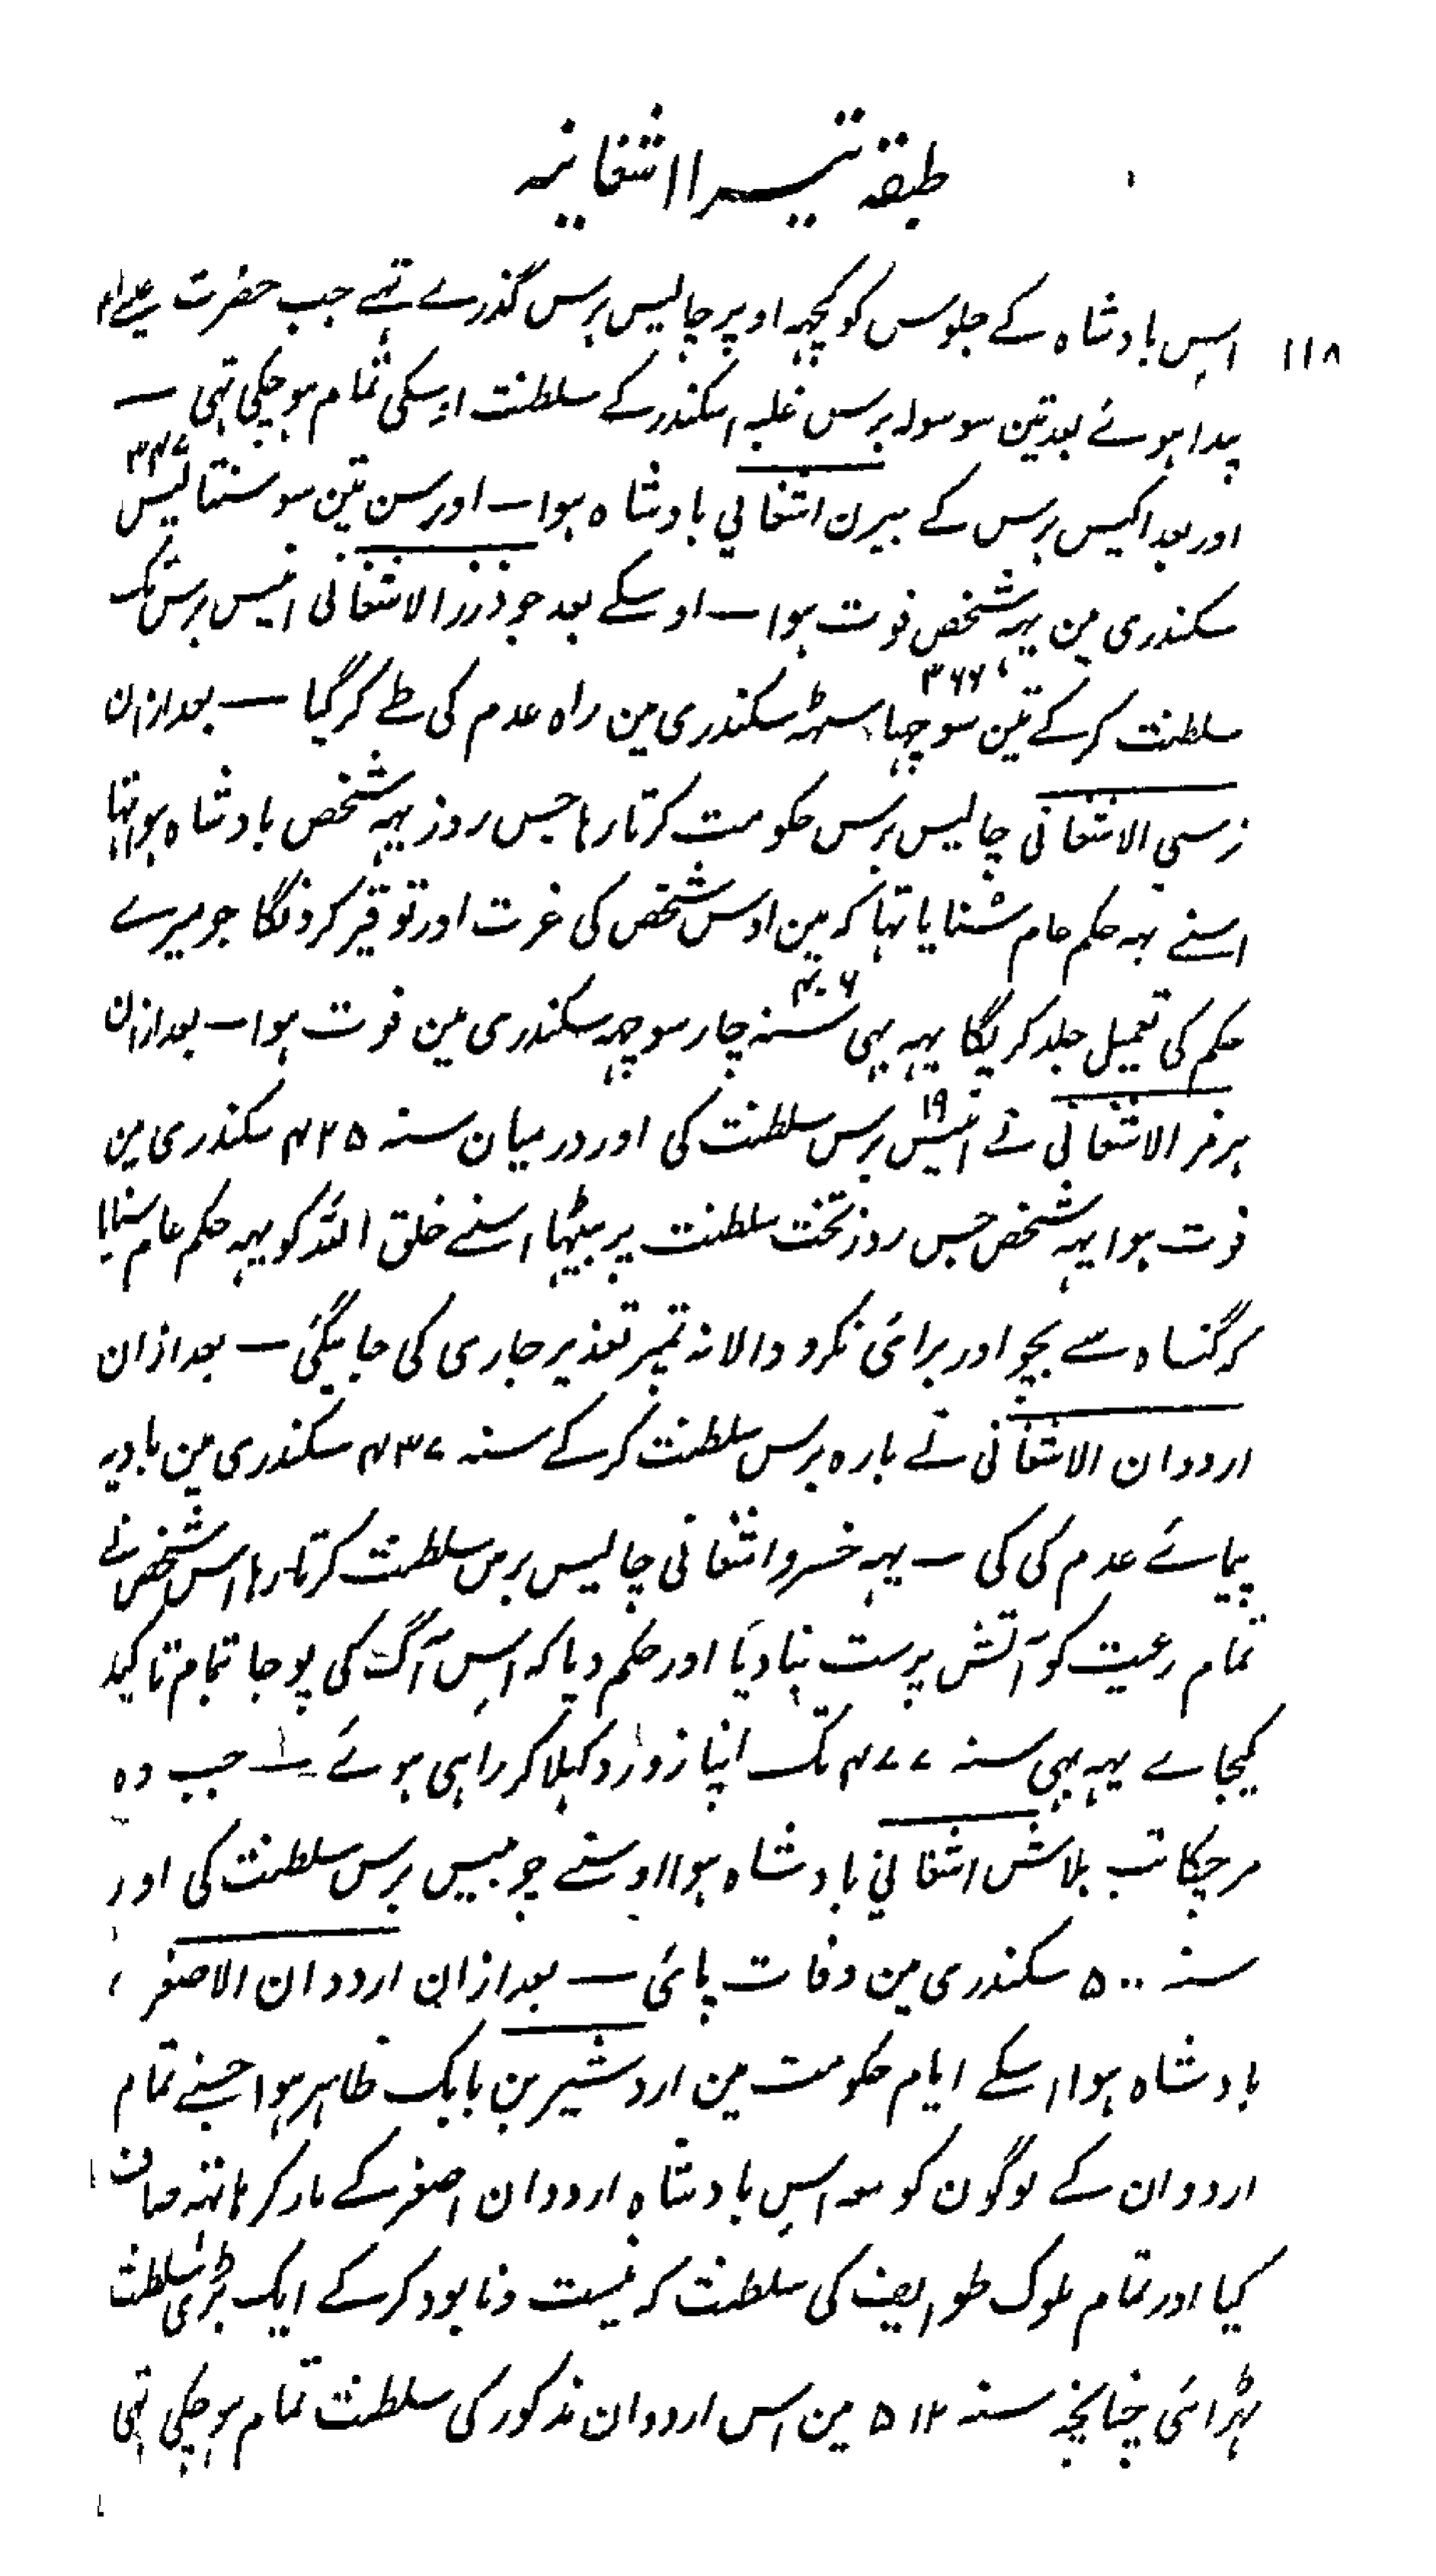 طبقہ تیسرا اشغانیہ
۱۱۸
اس بادشاہ کے جلوس کو کچہہ اوپر چالیس برس گذرے تہے جب حضرت عیسے
پیدا ہوئے بعد تین سو سولہ برس غلبہ اسکندر کے سلطنت اوسکی تمام ہو چکی تہی —
اور بعد اکیس برس کے بیرن اشغانی بادشاہ ہوا — اور سن تین سو سنتالیس ۳۴۷
سکندری مین یہہ شخص فوت ہوا — اوسکے بعد جوذرز الاشغانی انیس برس تک
سلطنت کر کے تین سو چہاسٹہہ ۳۶۶ سکندری مین راہ عدم کی طے کر گیا — بعد ازان
نرسی الاشغانی چالیس برس حکومت کرتا رہا جس روز یہہ شخص بادشاہ ہوا تہا
اسنے یہہ حکم عام سنایا تہا کہ مین اوس شخص کی عزت اور توقیر کرونگا جو میرے
حکم کی تعمیل جلد کریگا یہہ بہی سنہ چار سو چہہ ۴۰۶ سکندری مین فوت ہوا — بعد ازان
ہرمز الاشغانی نے انیس ۱۹ برس سلطنت کی اور درمیان سنہ ۴۲۵ سکندری مین
فوت ہوا یہہ شخص جس روز تخت سلطنت پر بیٹہا اسنے خلق اللہ کو یہہ حکم عام سنایا
کہ گناہ سے بچو اور برائی نکرو والا نہ تمپر تعذیر جاری کی جائیگی — بعد ازان
اردوان الاشغانی نے بارہ برس سلطنت کر کے سنہ ۴۳۷ سکندری مین بادیہ
پیمائے عدم کی کی — یہہ خسرو اشغانی چالیس برس سلطنت کرتا رہا اس شخص نے
تمام رعیت کو آتش پرست بنا دیا اور حکم دیا کہ اس آگ کی پوجا تمام تاکید
کیجاے یہہ بہی سنہ ۴۷۷ تک اپنا زور دکہلا کر راہی ہوئے — جب وہ
مر چکا تب بلاش اشغانی بادشاہ ہوا اوسنے چوبیس برس سلطنت کی اور
سنہ ۵۰۰ سکندری مین وفات پائی — بعد ازان اردوان الاصغر
بادشاہ ہوا اسکے ایام حکومت مین اردشیر بن بابک ظاہر ہوا جسنے تمام
اردوان کے لوگون کو معہ اس بادشاہ اردوان اصغر کے مار کر ہاتہہ صاف
کیا اور تمام ملوک طوایف کی سلطنت کہ نیست و نابود کر کے ایک بڑی سلطنت
ٹہرائی چنانچہ سنہ ۵۱۲ مین اس اردوان مذکور کی سلطنت تمام ہو چکی تہی